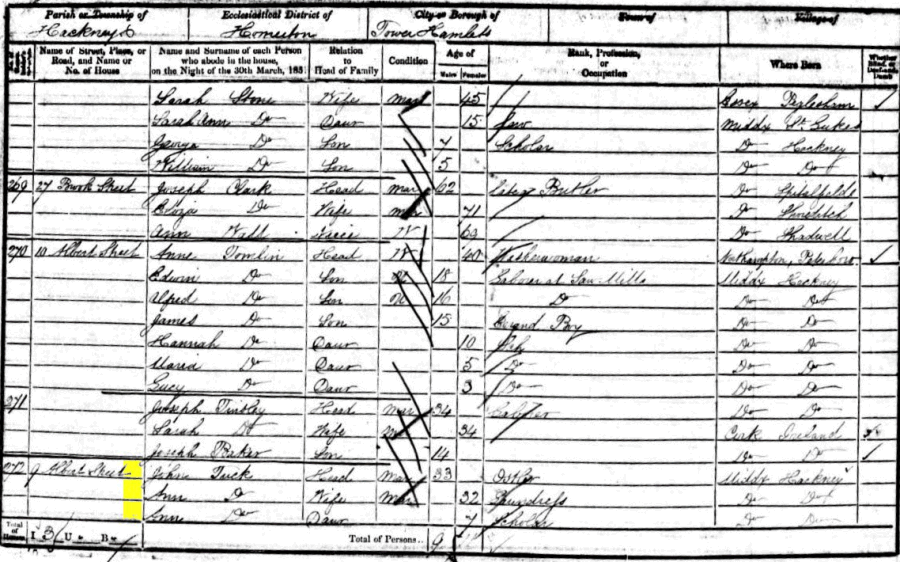 Parish or Township of Ecclesiastical District of City or Borough of Town of Village of
Hackney Homerton Tower Hamlets
Name of Street, Place, or Road, and Name or No. of House Name and Surname of each Person who abode in the house, on the Night of the 30th March, 185 Relation to Head of Family Condition Age of Males Females Rank, Profession, or Occupation Where Born Whether Blind, or Deaf-and-Dumb
Sarah Stone Wife Mar 45 Essex
Sarah Ann Do Daur 15 Middx St Lukes
George Do Son 7 Scholar Do Hackney
William Do Son 5 Do Do
269 27 Brook Street Joseph Clark Head Mar 62 Butler Do Spitalfields
Eliza Do Wife Mar 71 Do Shoreditch
Ann Wall W 69 Do Shadwell
270 10 Albert Street Anne Tomlin Head W 40 Washerwoman Northampton,
Edwin Do Son 18 Labour at Saw Mills Middx Hackney
Alfred Do Son 16 Do Do Do
James Do Son 15 Errand Boy Do Do
Hannah Do Daur 10 Do Do
Maria Do Daur 5 Do Do Do
Lucy Do Daur 3 Do Do Do
271 Joseph Head Mar 34 Do Do
Sarah Do Wife 34 Cork Ireland
Joseph Baker Son 14 Do Do
272 9 Albert Street John Tuck Head Mar 33 Middx Hackney
Ann D Wife Mar 32 Laundress Do Do
Anne Do Daur 7 Scholar Do Do
Total of Houses I 3 U B Total of Persons.. 9